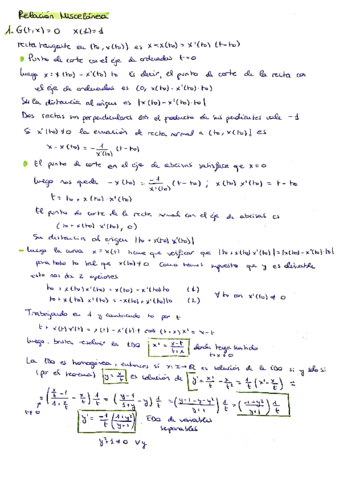 Relación Miscelánea
1. G(t,x)=0 x(1)=1
recta tangente en (to, x(to)) es x-x(to) = x'(to) (t-to)
Punto de corte con el eje de ordenadas t=0
luego x = x(to) - x'(to) to es decir, el punto de corte de la recta con
el eje de ordenadas es (0, x(to) - x'(to)·to)
Su distancia al origen es |x(to) - x'(to)·to|
Dos rectas son perpendiculares si el producto de sus pendientes vale -1
Si x'(to) ≠ 0 la ecuación de recta normal a (to, x(to)) es
x - x(to) = -1/x'(to) (t-to)
El punto de corte en el eje de abcisas satisface que x=0
luego nos queda -x(to) = -1/x'(to) (t-to) ; x(to) x'(to) = t-to
t = to + x(to)·x'(to)
El punto de corte de la recta normal con el eje de abcisas es
(to + x(to) x'(to), 0)
Su distancia al origen |to + x(to) x'(to)|
luego la curva x = x(t) tiene que verificar que |to + x(to) x'(to)| = |x(to) - x'(to) to|
para todo to tal que x'(to) ≠ 0 como tenemos supuesto que y es derivable
esto nos da 2 opciones
to + x(to) x'(to) = x(to) - x'(to) to (1)
to + x(to) x'(to) = -x(to) + x'(to) to (2) ∀ to con x'(to) ≠ 0
Trabajando en 1 y cambiando to por t
t + x(t) x'(t) = x(t) - x'(t) t (t+x) x' = x-t
luego, basta resolver la EDO x' = x-t/t+x donde tenga sentido
t+x ≠ 0
La EDO es homogénea, entonces si x: I→R es solución de la EDO si y sólo si
(por el teorema) y = x/t es solución de y' = x'/t - x/t² = 1/t (x' - x/t) =
= (x/t - 1 / 1 + x/t - x/t) 1/t = (y-1/1+y - y) 1/t = (y-1-y-y²/y+1) 1/t = (-1+y²/y+1) 1/t
t≠0
y' = -1/t (1+y²/y+1) EDO de variables
separables
y²+1≠0 ∀y